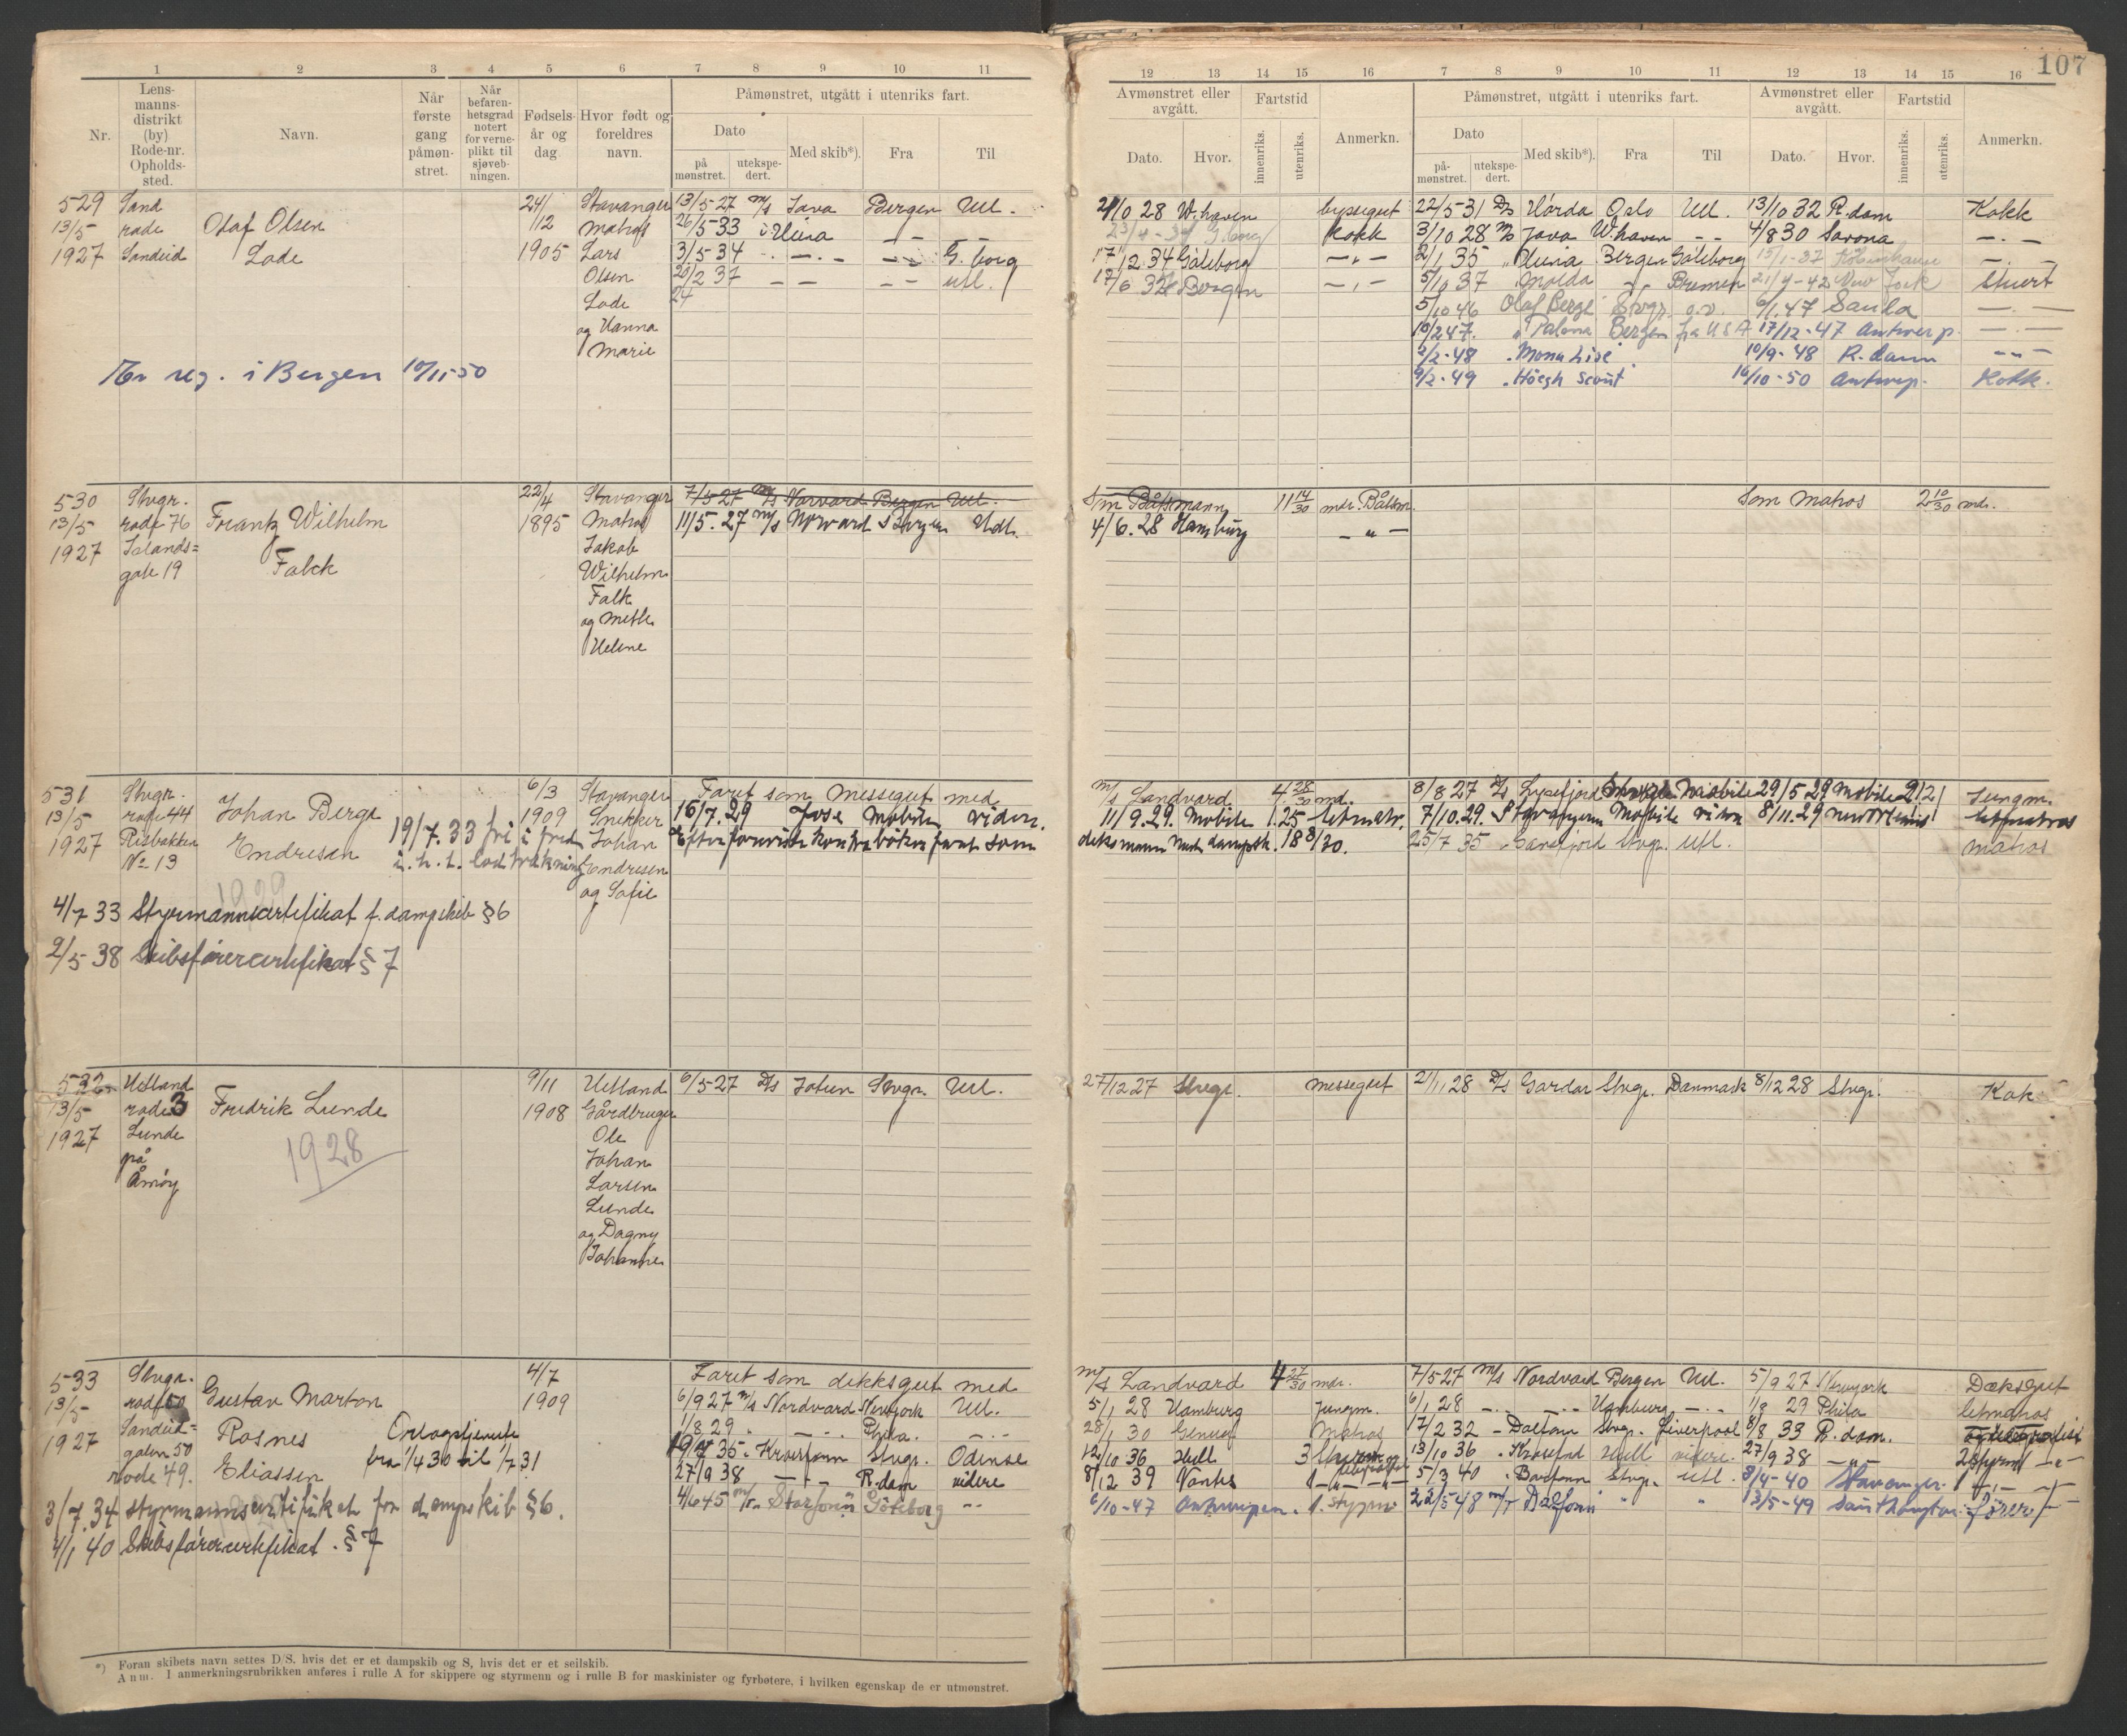 107
1 2 3 4 5 6 7 8 9 10 11
Nr.
Lens-
manns-
distrikt
(by)
Rode-nr.
Opholds-
sted.
Navn.
Når
første
gang
påmøn-
stret.
Når
befaren-
hetsgrad
notert
for verne-
plikt til
sjøveb-
ningen.
Fødsels-
år og
dag
Hvor født og
foreldres
navn.
Påmønstret, utgått i utenriks fart.
Dato
på
mønstret.
utekspe-
dert.
Med skib*).
Fra
Til
12 13 14 15 16 7 8 9 10 11 12 13 14 15 16
Avmønstret eller
avgått.
Dato.
Hvor.
Fartstid
innenriks.
utenriks.
Anmerkn.
Påmønstret, utgått i utenriks fart.
Dato
på-
mønstret.
utekspe-
dert.
Med skib*).
Fra
Til
Avmønstret eller
avgått.
Dato.
Hvor.
Fartstid
innenriks.
utenriks.
Anmerkn.
529
13/5
1927
Sand
rode
Sandeid
Olaf Olsen
Lode
24/
12
1905
Stavanger
Matros
Lars
Olsen
Lode
og Hanna
Marie
13/5-27 M/S Java Bergen Utl.
26/5-33 — —
3/5 34 -.-.- -.- G.borg
20/2 37 - - - - utl.
24
Er reg. i Bergen 10/11-50
21/10 28 W.haven byssegutt
23/4-34 G.borg Kokk
17/12 34 Göteborg -,-
17/6 32 Bergen -,-
22/5-31 D/S Horda Oslo Utl. 13/10 32 R.dam Kokk
3/10 28 M/S Java W.haven - - 4/8 30 Savona -.-
2/1 35 Bergen Göteborg 15/1-37 -.-
5/10 37 Molda -,- Bremen 21/4-42 New York Stuert
5/10 46 Olaf Bergh Svgr. 6/1 47 -.-
10/2 47. Bergen fra USA 17/12-47 Antwerp. -.-
2/2-48 Mona Lise 10/9-48 R.dam -"-
9/2-49 Höegh Scout 16/10-50 Antwerp. Kokk.
530
13/5
1927
Stvgr.
rode 76
Jelands=
gate 19
Frantz Wilhelm
Falck
22/4
1895
Stavanger
Matros
Jakob
Wilhelm
Falk
og Mette
Helene
7/5-27 M/S Norvard Bergen Utl.
11/5.27 M/S Norvard Bergen Utl.
Som Båtsmann 11 14/30 mdr. Båtsm.
4/6.28 Hamburg -"-
Som Matros 2 10/30 mdr.
531
13/5
1927
Stvgr.
rode 44
Risbakken
No 13
Johan Berge
Endresen
19/7.33 fri i fred
i.h.t. lodtrekning
6/3
1909
Stavanger
Snekker
Johan
Endresen
og Sofie
Faret som Messegut med
16/7.29 Jose Mobile videre.
Efter foreviste kontrabøker faret som
1929
4/7 33 Styrmannscertifikat f. dampskib §6
2/5-38 Skibsførercertifikat § 7
M/S Landvard 4 28/30 md.
11/9.29. Mobile 1.25 letmatr.
dekksmann med dampsk. 18 8/30.
8/8 27 D/S Lysefjord Mobile 29/5 29 Mobile 21 21 Jungm.
7/10.29. Stavangeren Mobile videre 8/11.29 New Orleans letmatros
25/7 35 Stvgr. Utl. Matros
532
13/5
1927
Hetland
rode 3
Lunde
på
Åmøy
Fredrik Lunde
1928
9/11
1908
Hetland
Gårdbruger
Ole
Johan
Larsen
Lunde
og Dagny
Johanne
6/5-27 D/S Jotun Stvgr. Utl.
27/12 27 Stvgr. Messegut
21/11 28 D/S Gardar Stvgr. Danmark 8/12 28 Stvgr. Kok
533
13/5-
1927
Stvgr.
rode 50
Sandeid=
gaten 50
rode 49.
Gustav Marton
Rosnes
Eliassen
Orlogstjeneste
fra 1/4 30 til 1/7 31
4/7
1909
Faret som dekksgut med
6/9 27 M/S Nordvard Newyork Utl.
1/8 29 . -..- Phila. -..-
19/4 35 Stvgr. Odense
27/9 38 -"- R.dam videre
4/6 45 Göteborg --
3/7.34 styrmannscertifikat for dampskib §6.
4/1 40 Skibsførercertifikat. §7
M/S Landvard 4 27/30 mdr.
5/1 28 Hamburg Jungm.
28/1 30 Genua Matros
12/10 36 Hull 3 Styrm.
8/12 39 Nantes 1 -"-
6/10-47 Antwerpen. 1. styrm
7/5-27 M/S Nordvard Bergen Utl. 5/9 27 Newyork Dæksgut
6/1 28 -..- Hamburg -..- 1/8 29 Phila letmatros
17/2 32 - Stvgr. Liverpool 8/8 33 R.dam.
13/10 36 Hull videre. 27/9 38 -"- 2 styrm -"-
5/3 40 Stvgr. Utl. 8/4-40 Stavanger. 1 -"-
22/5 48 M/T Dalfonn " " 13/5-49 Southampton fører
*) Foran skibets navn settes D/S. hvis det er et dampskib og S, hvis det er et seilskib.
Anm. I anmerkningsrubrikken anføres i rulle A for skippere og styrmenn og i rulle B for maskinister og fyrbøtere, i hvilken egenskap de er utmønstret.